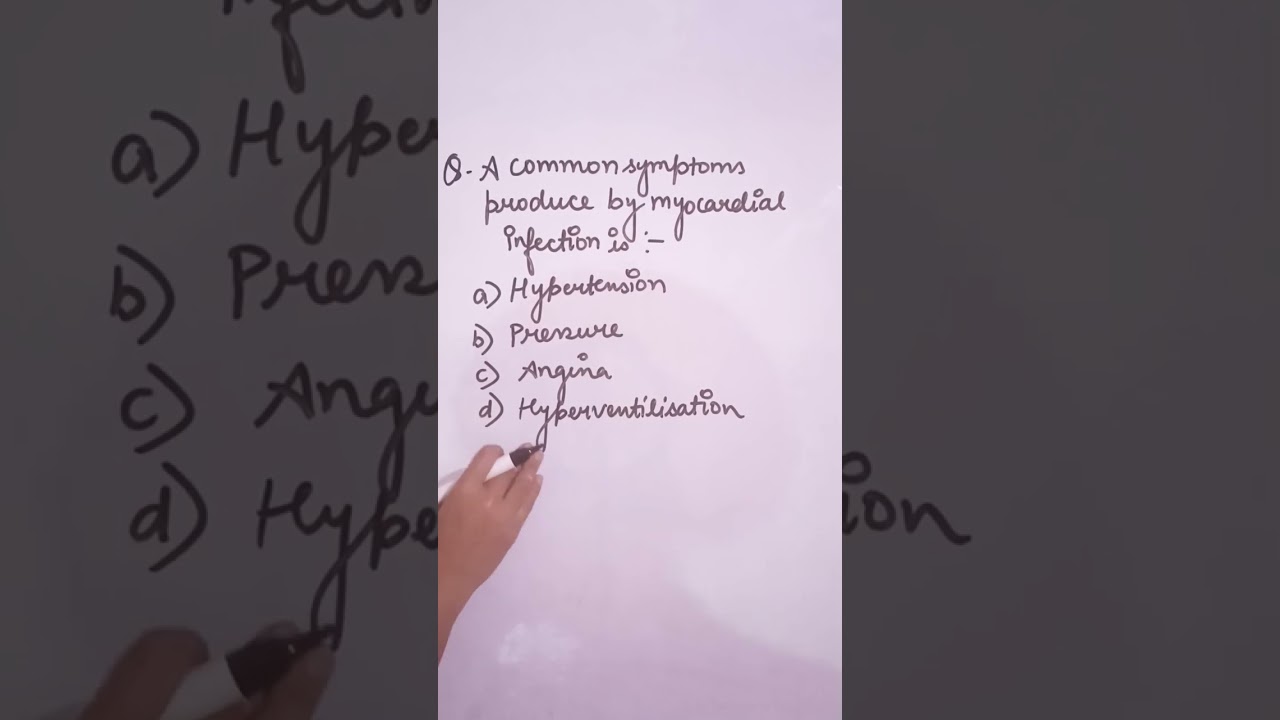 Q. A common symptoms
produce by myocardial
infection is :-
a) Hypertension
b) Pressure
c) Angina
d) Hyperventilisation